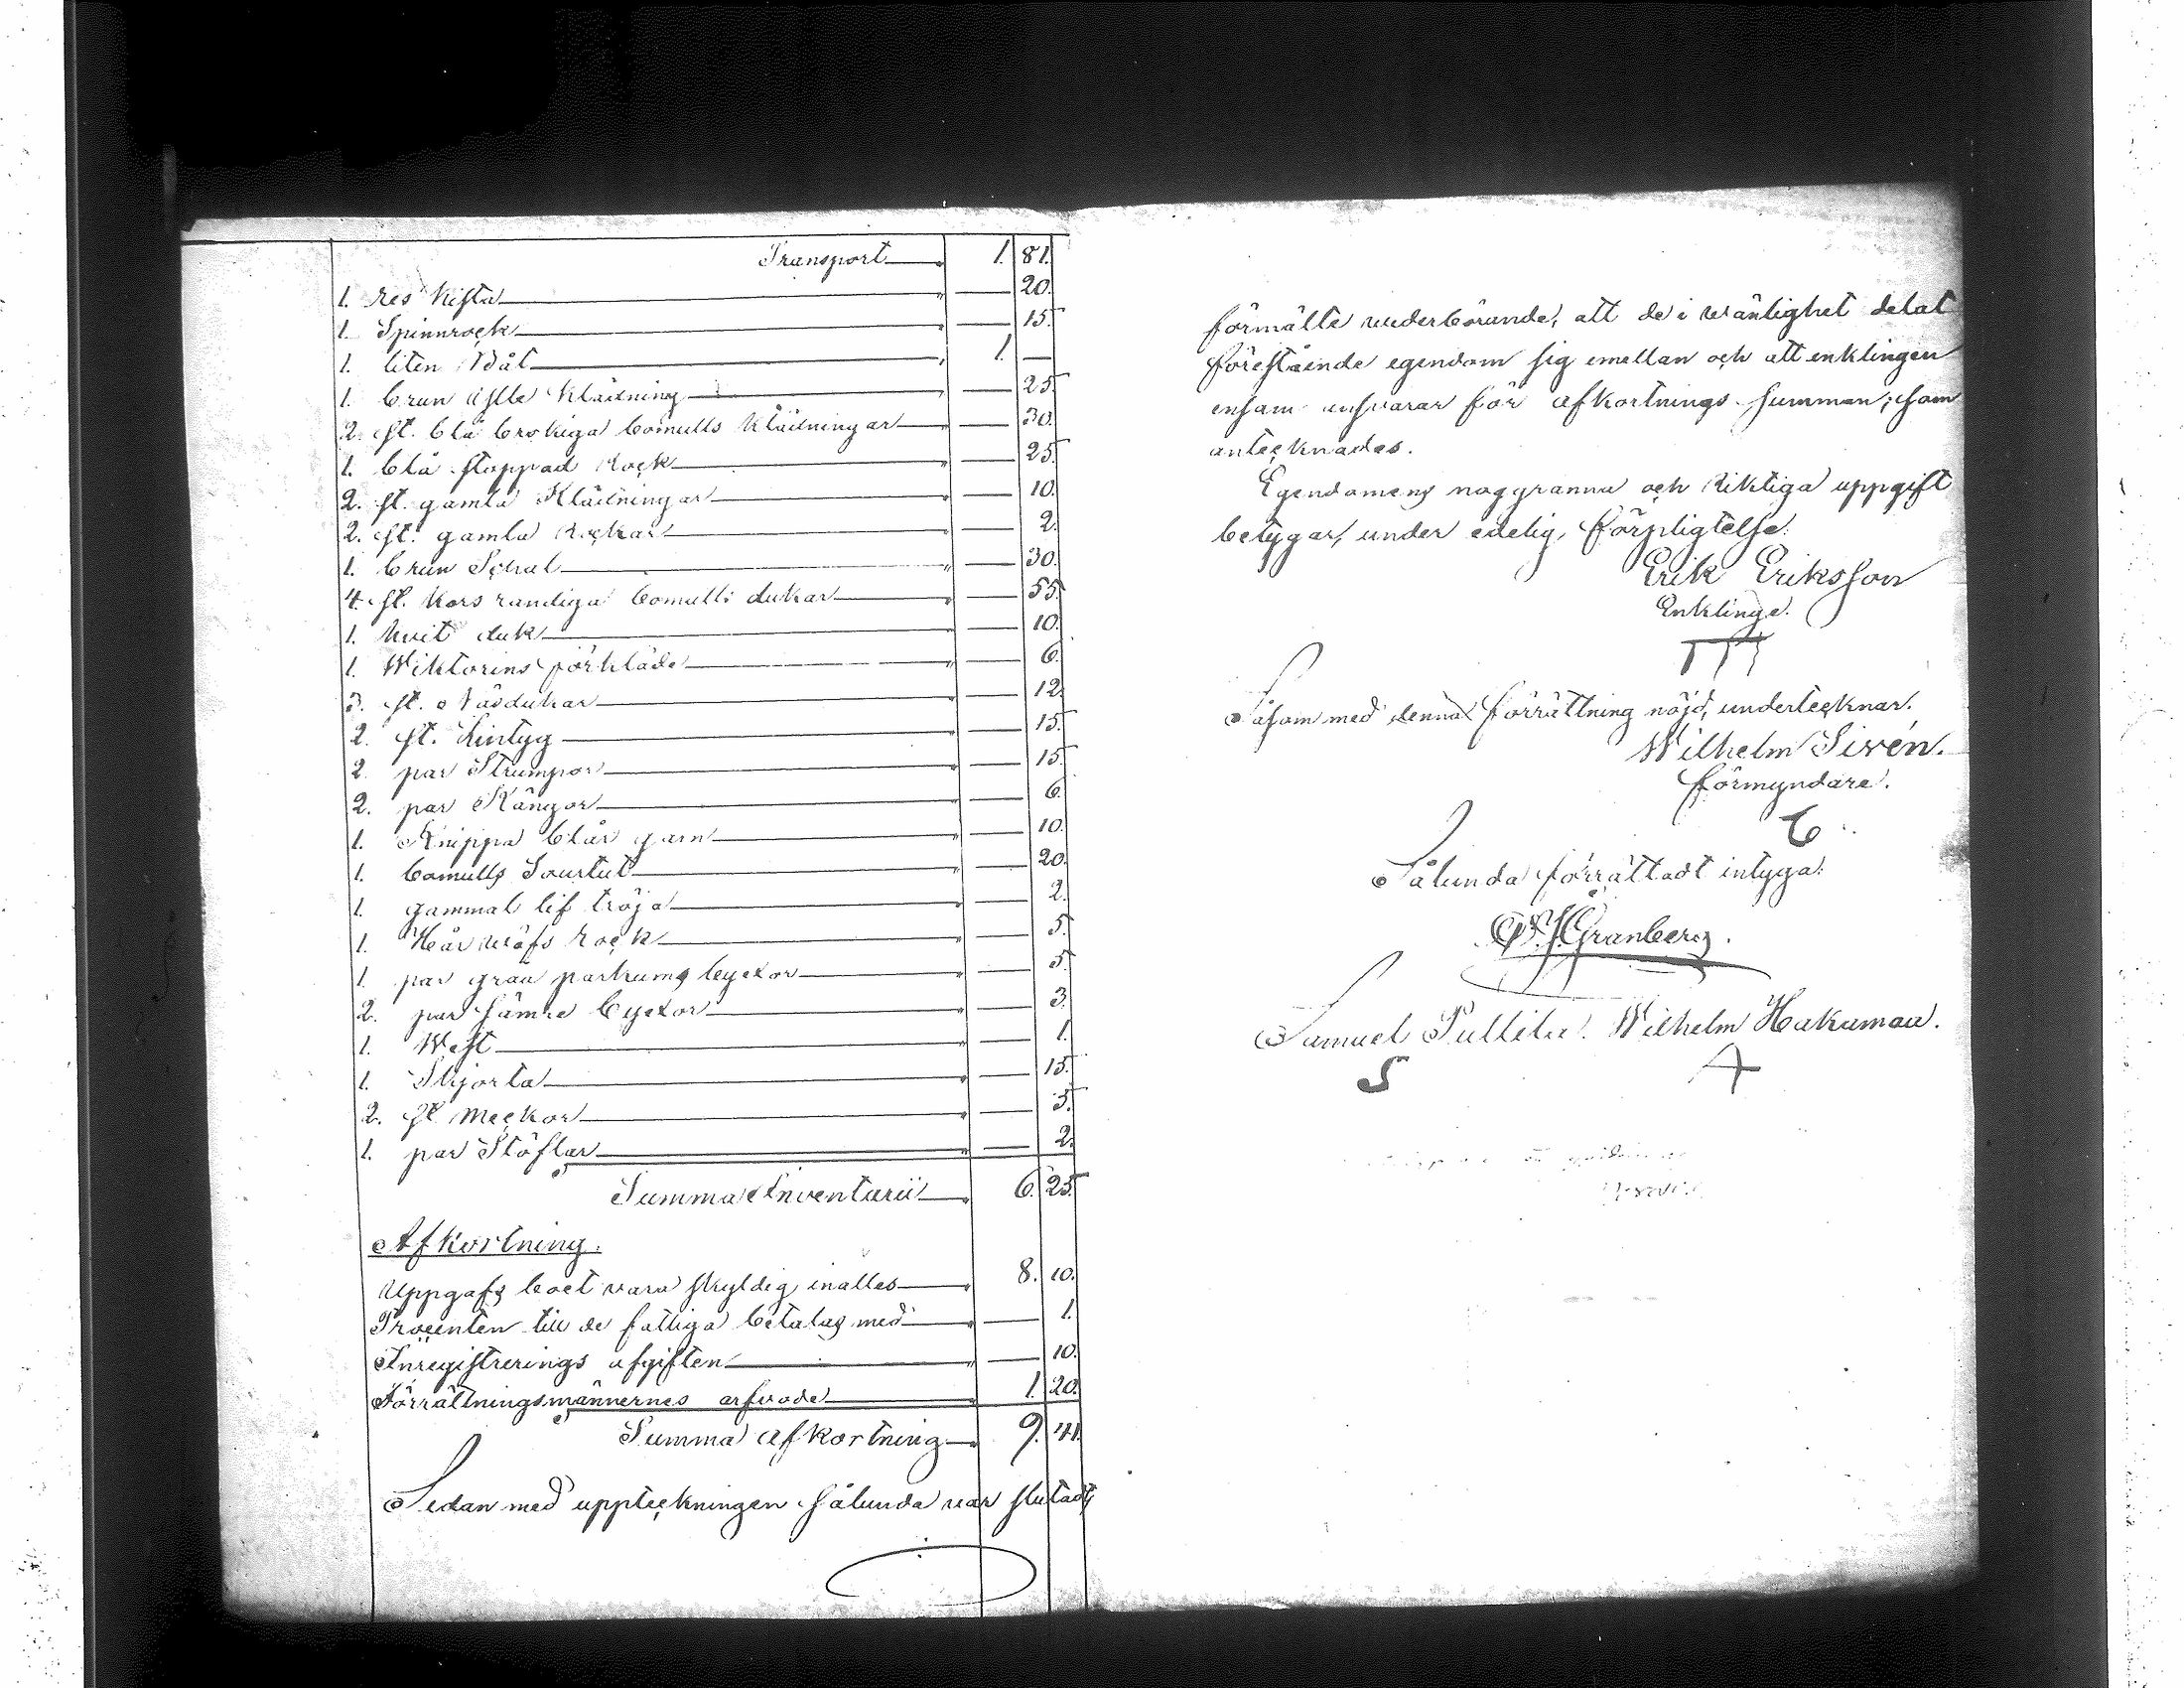 Transport 1. 81.
1. res kista — 20.
1. Spinnrock — 15.
1. liten Båt 1. —
1. brun ylle klädning — 25.
2. st. blå brokiga bomulls klädningar — 30.
1. blå stoppad Rock — 25.
2. st. gamla Klädningar — 10.
2. st. gamla Rockar — 2.
1. brun Schal — 30.
4. st. kors randiga bomulls dukar — 55.
1. hvit duk — 10.
1. Wiktorins förkläde — 6.
3. st. Näsdukar — 12.
2. st. Lintyg — 15.
2. par Strumpor — 15.
2. par Kängor — 6.
1. Knippa blår garn — 10.
1. bomulls Sourtut — 20.
1. gammal lif tröja — 2.
1. Hår wäfs rock — 5.
1. par grau parkums byxor — 5.
2. par sämre byxor — 3.
1. West — 1.
1. Skjorta — 15.
2. st. Meckor — 3.
1. par Stöflar — 2.
Summa Inventarii 6. 25.
Afkortning.
Uppgafs boet vara skyldig inalles 8. 10.
Procenten till de fattiga betalas med — 1.
Inregistrerings afgiften — 10.
Förrättningsmännernes arfvode 1. 20.
Summa afkortning 9. 41.
Sedan med uppteckningen sålunda var slutadt,
förmälte wederbörande, att de i wänlighet delat
förestående egendom sig emellan och att enklingen
ensam ansvarar för afkortnings summan; som
antecknades.
Egendomens noggranna och Riktiga uppgift
betygar, under edelig, förpligtelse:
Erik Eriksson
Enklinge.
Såsom med denna förrättning nöjd, undertecknar.
Wilhelm Sirén.
förmyndare.
Sålunda förrättadt intyga:
Granberg.
Samuel Pullila. Wilhelm Hakuman.
S A